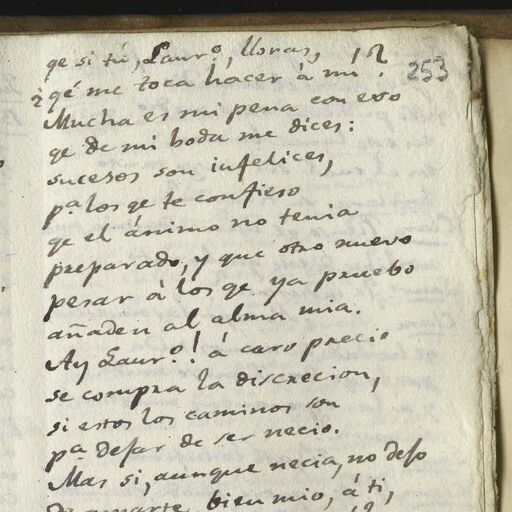 qe si tú, Laurº, lloras,
¿qé me toca hacer á mí?
253
Mucha es mi pena con eso
qe de mi boda me dices:
sucesos son infelices,
pª los qe te confieso
qe el ánimo no tenia
preparado, y que otro nuevo
pesar á los qe ya pruebo
añaden al alma mia.
Ay Laurº! á caro precio
se compra la discrecion,
si estos los caminos son
pª dejar de ser necio.
Mas si, aunque necia, no dejo
De amarte, bien mio, á ti,